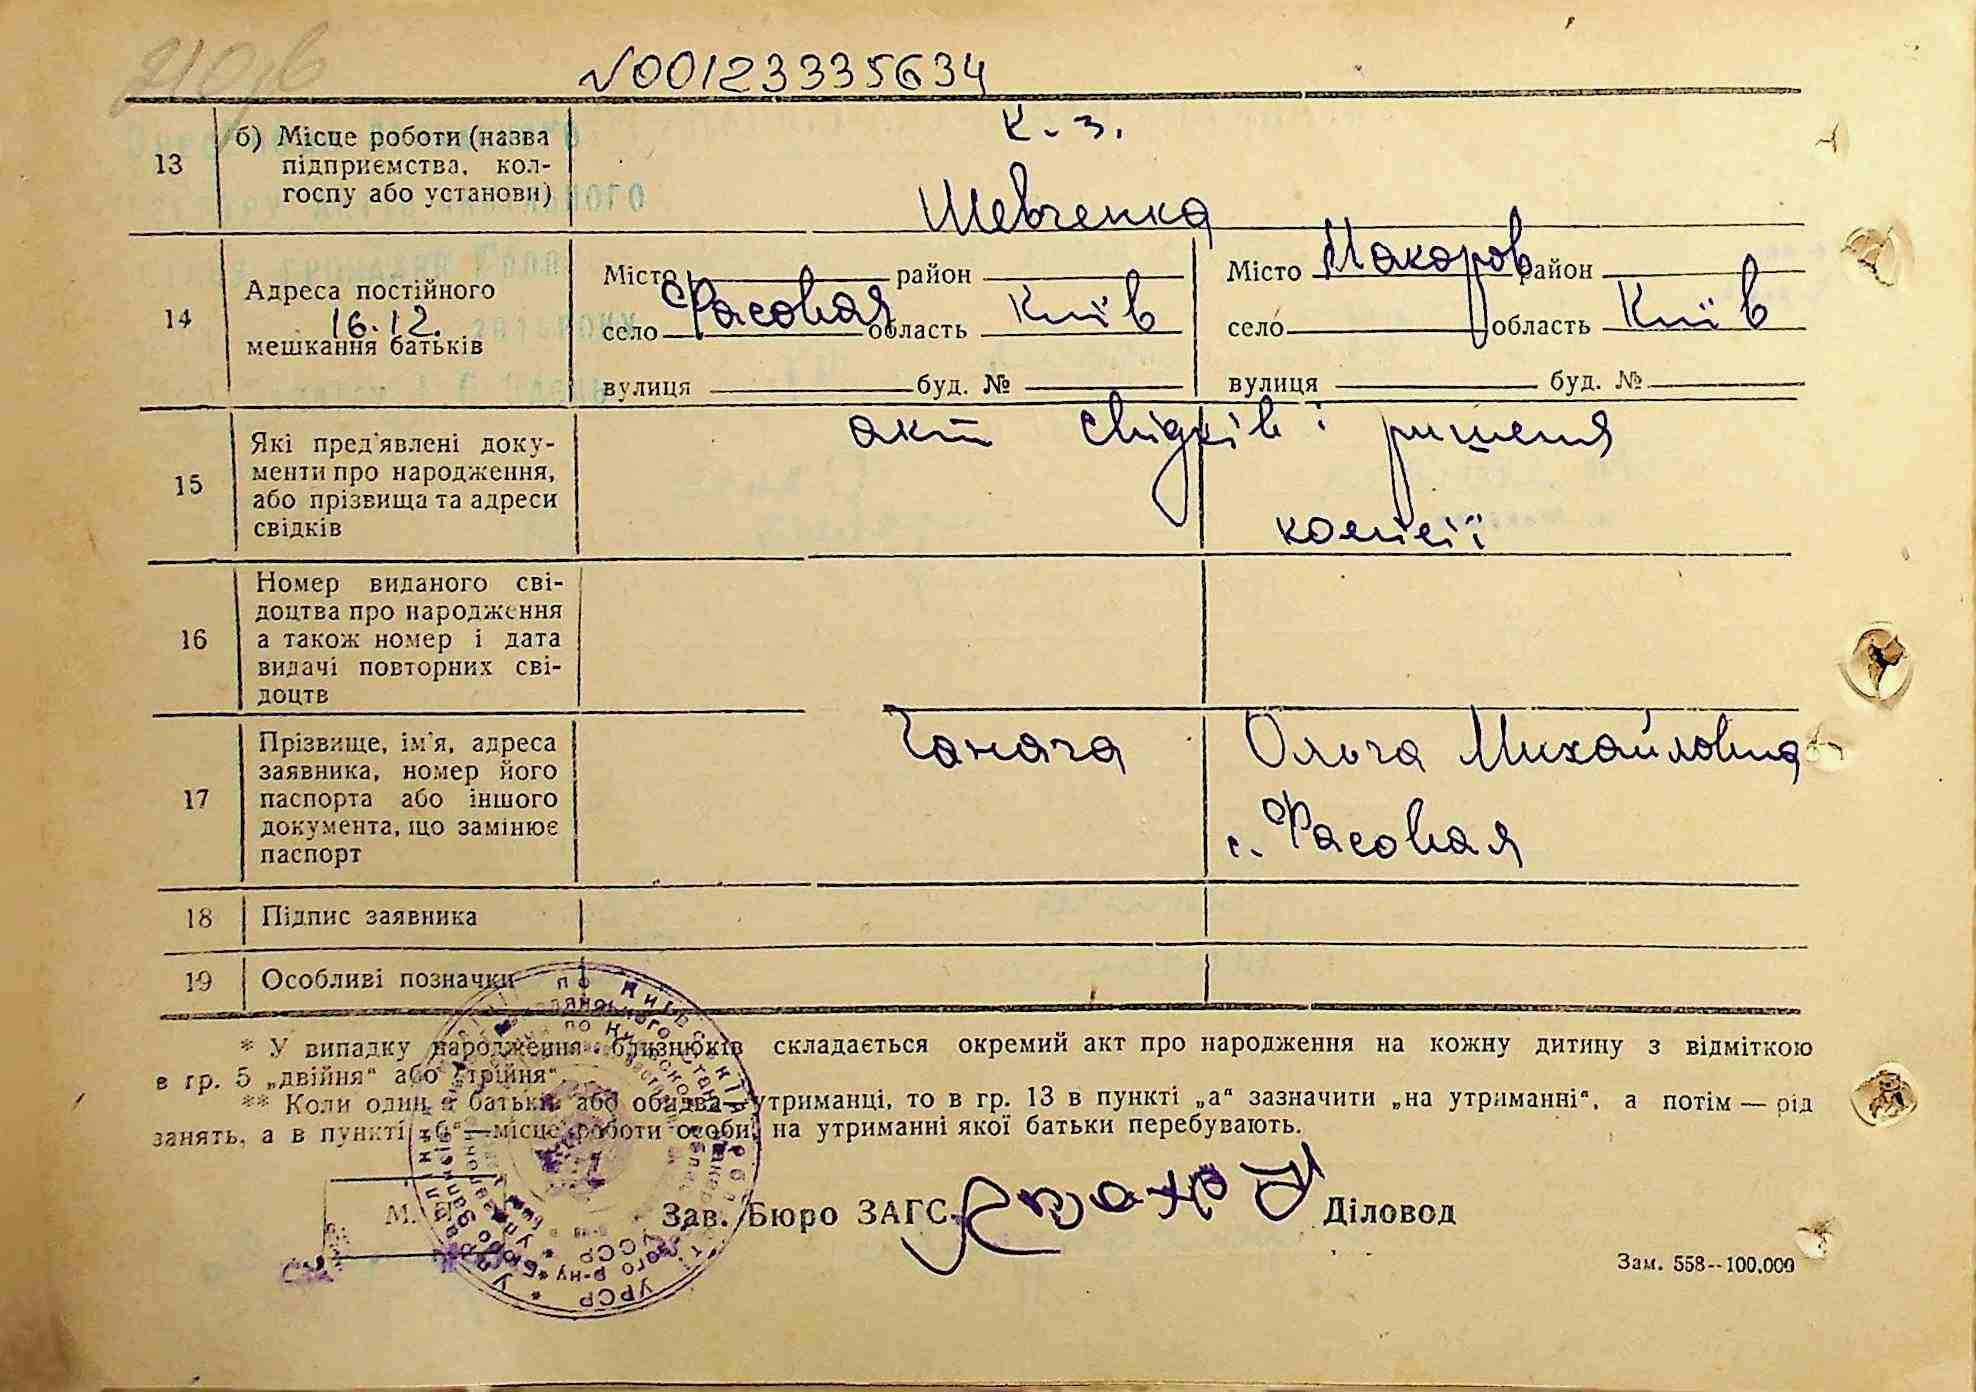 №00123335634
13
б) Місце роботи (назва
підприємства, кол-
госпу або установи)
к. з.
Шевченка
14
Адреса постійного
16.12.
мешкання батьків
Місто район
село Фасовая область Київ
вулиця буд. №
Місто Макаров район
село область Київ
вулиця буд. №
15
Які пред'явлені доку-
менти про народження,
або прізвища та адреси
свідків
акт свідків і ришення
комісії
16
Номер виданого сві-
доцтва про народження
а також номер і дата
видачі повторних сві-
доцтв
17
Прізвище, ім'я, адреса
заявника, номер його
паспорта або іншого
документа, що замінює
паспорт
Ганага Ольга Михайловна
с. Фасовая
18
Підпис заявника
19
Особливі позначки
* У випадку народження близнюків складається окремий акт про народження на кожну дитину з відміткою
в гр. 5 „двійня“ або „трійня“
** Коли один з батьків або обидва утриманці, то в гр. 13 в пункті „а“ зазначити „на утриманні“, а потім — рід
занять, а в пункті „б“ — місце роботи особи, на утриманні якої батьки перебувають.
Зав. Бюро ЗАГС Діловод
Зам. 558--100.000